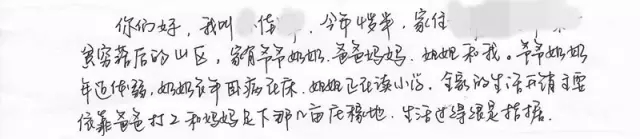 你们好，我叫 佳 ，今年4岁半，家住
贫穷落后的山区，家有爷爷奶奶、爸爸妈妈、姐姐和我。爷爷奶奶
年迈体弱，奶奶长年卧病在床，姐姐正在读小学，全家的生活开销主要
依靠爸爸打工和妈妈足下那几亩庄稼地，生活过得很是拮据。